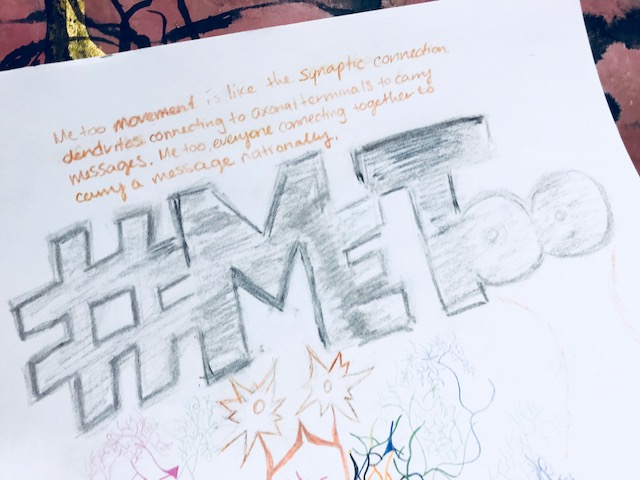 Me too movement is like the synaptic connection
dendrites connecting to axonal terminals to carry
messages. Me too, everyone connecting together to
carry a message nationally.
#METoo